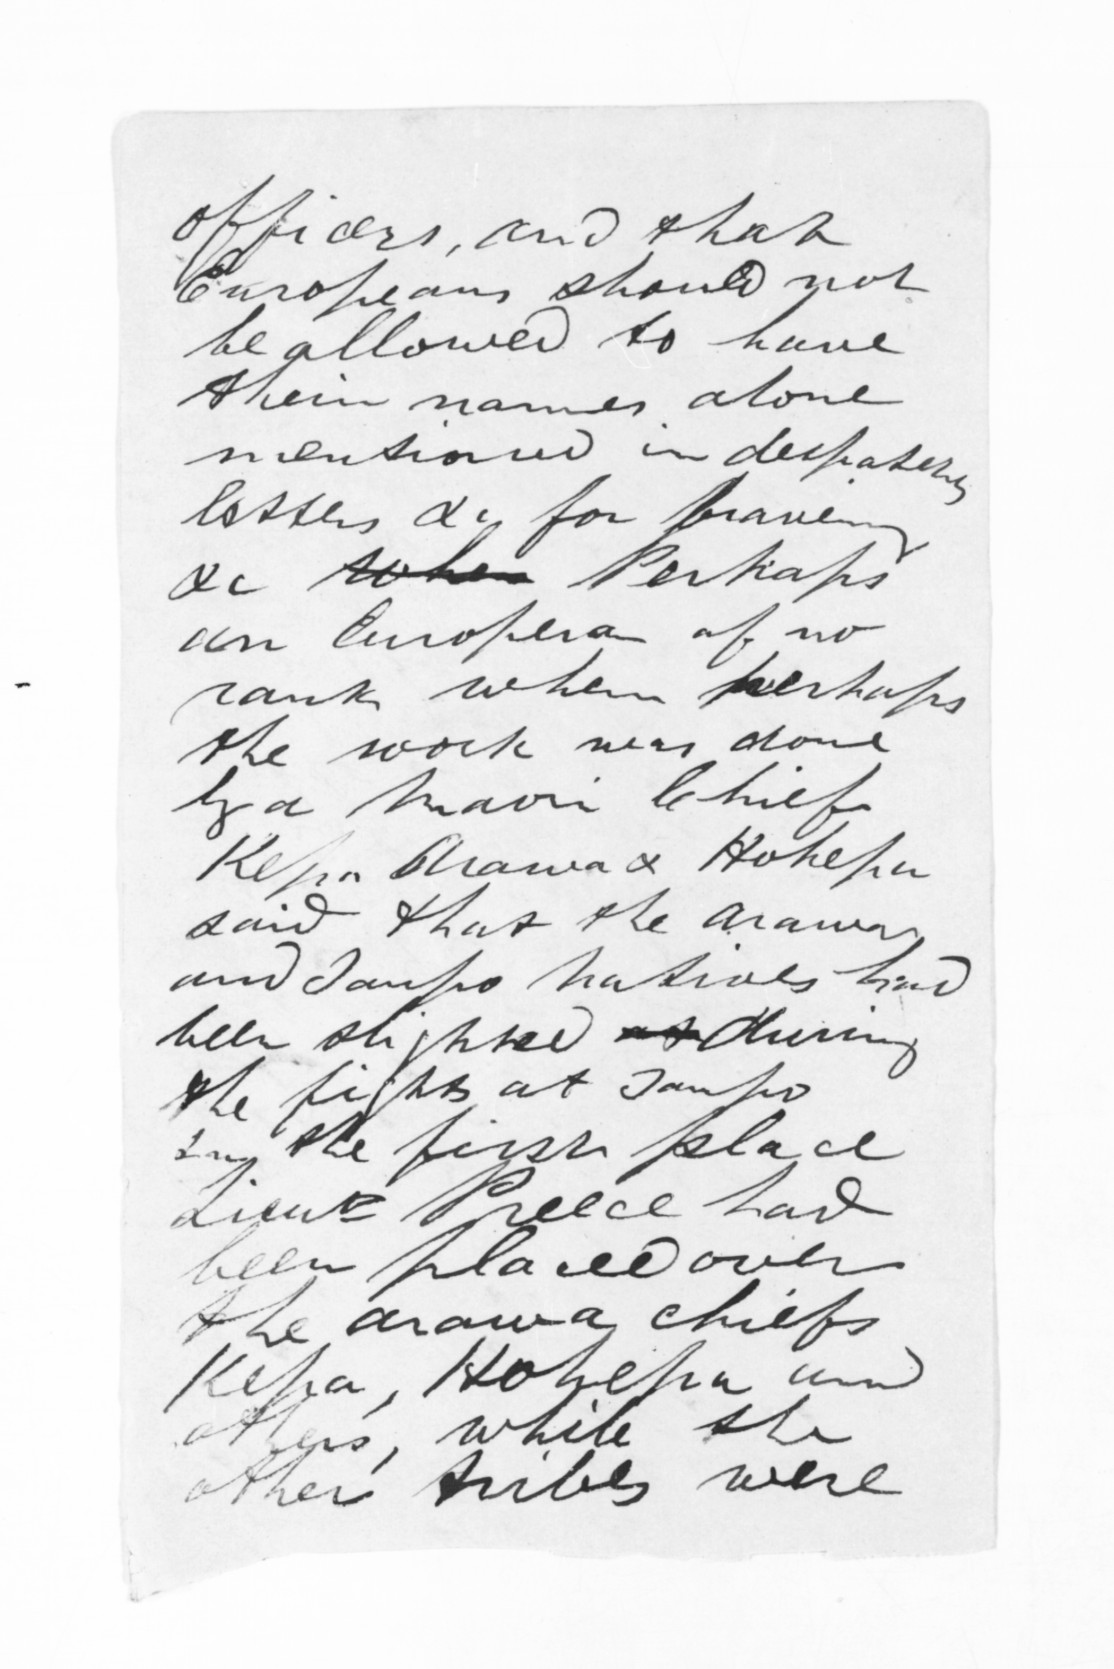 officers, and that
Europeans should not
be allowed to have
their names alone
mentioned in despatches
letters &c for bravery
&c when Perhaps
an European of no
rank when perhaps
the work was done
by a Maori Chief
Kepa Arawa & Hohepa
said that the Arawas
and Taupo Natives had
been slighted at during
the fights at Taupo
In the first place
Lieut Preece had
been placed over
the Arawa chiefs
Kepa, Hohepa and
others, while the
other tribes were